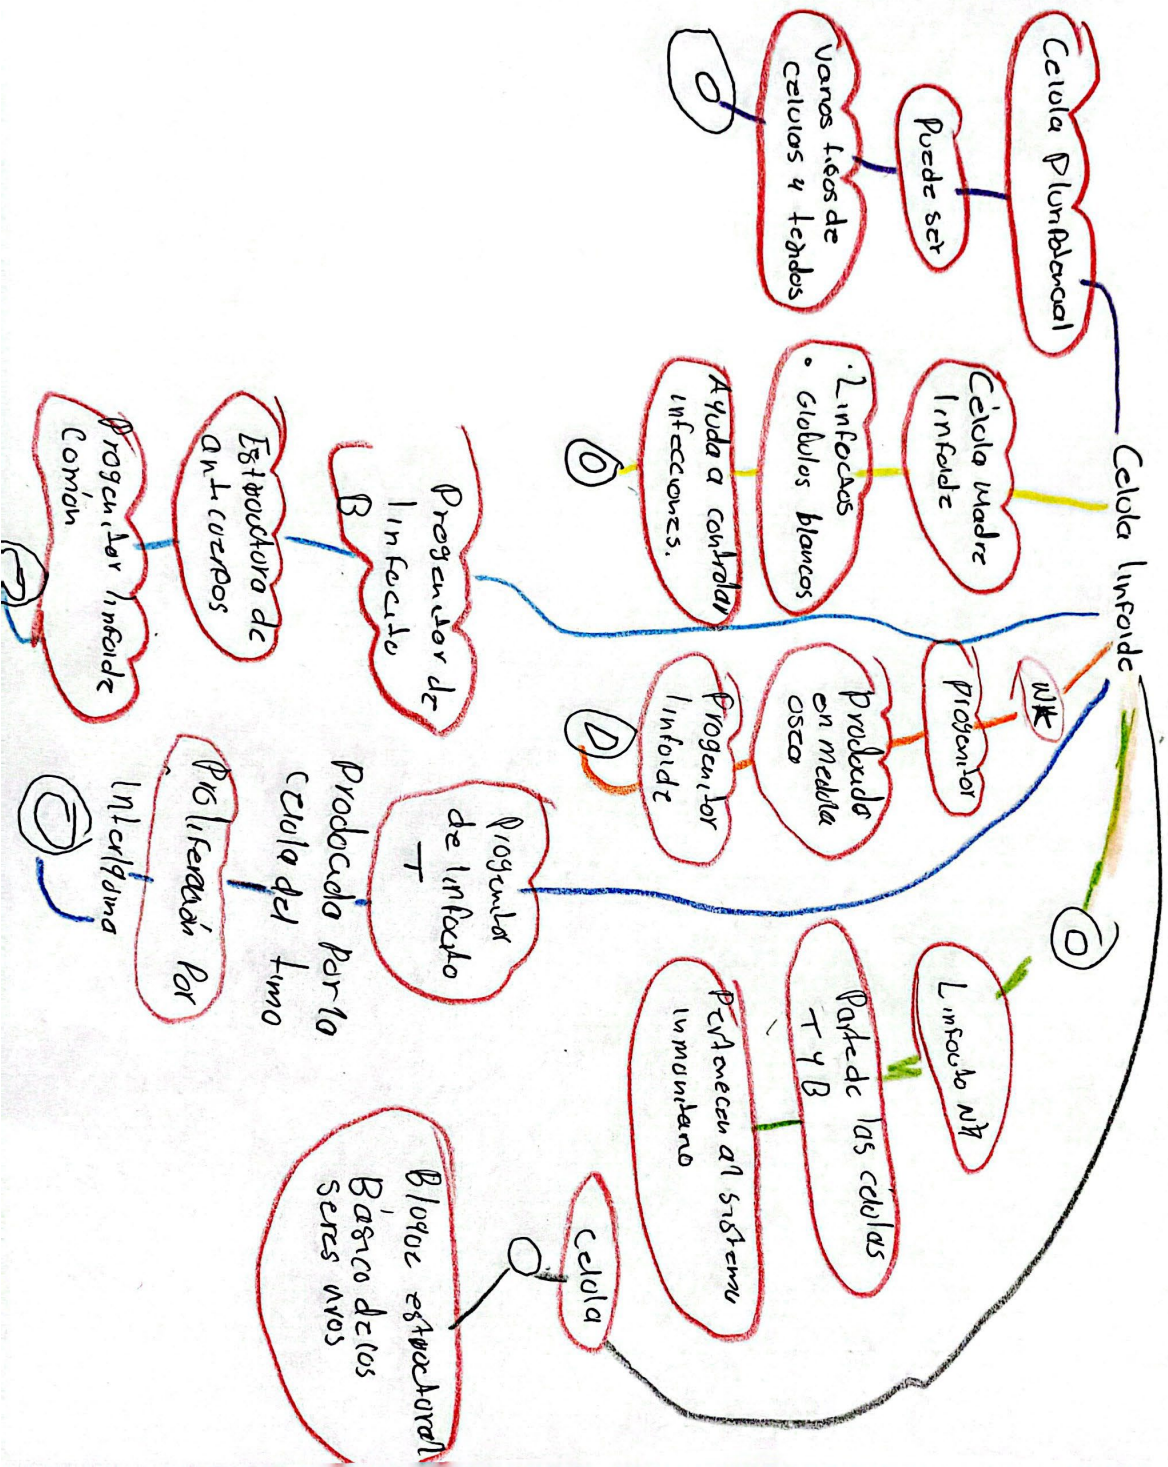 Celula linfoide
Celula Pluripotencial
Puede ser
Varios tipos de
celulas y tejidos
Célula Madre
linfoide
• Linfocitos
• Globulos blancos
Ayuda a controlar
infecciones.
Progenitor de
linfocito
B
Estructura de
anticuerpos
Progenitor linfoide
Común
NK
Progenitor
Producido
en medula
osea
Progenitor
linfoide
Progenitor
de linfocito
T
Producido Por la
celula del timo
Proliferación Por
Linfocito NK
Parte de las células
T y B
Pertenecen al sistema
inmunitario
Celula
Bloque estructural
Básico de los
seres vivos